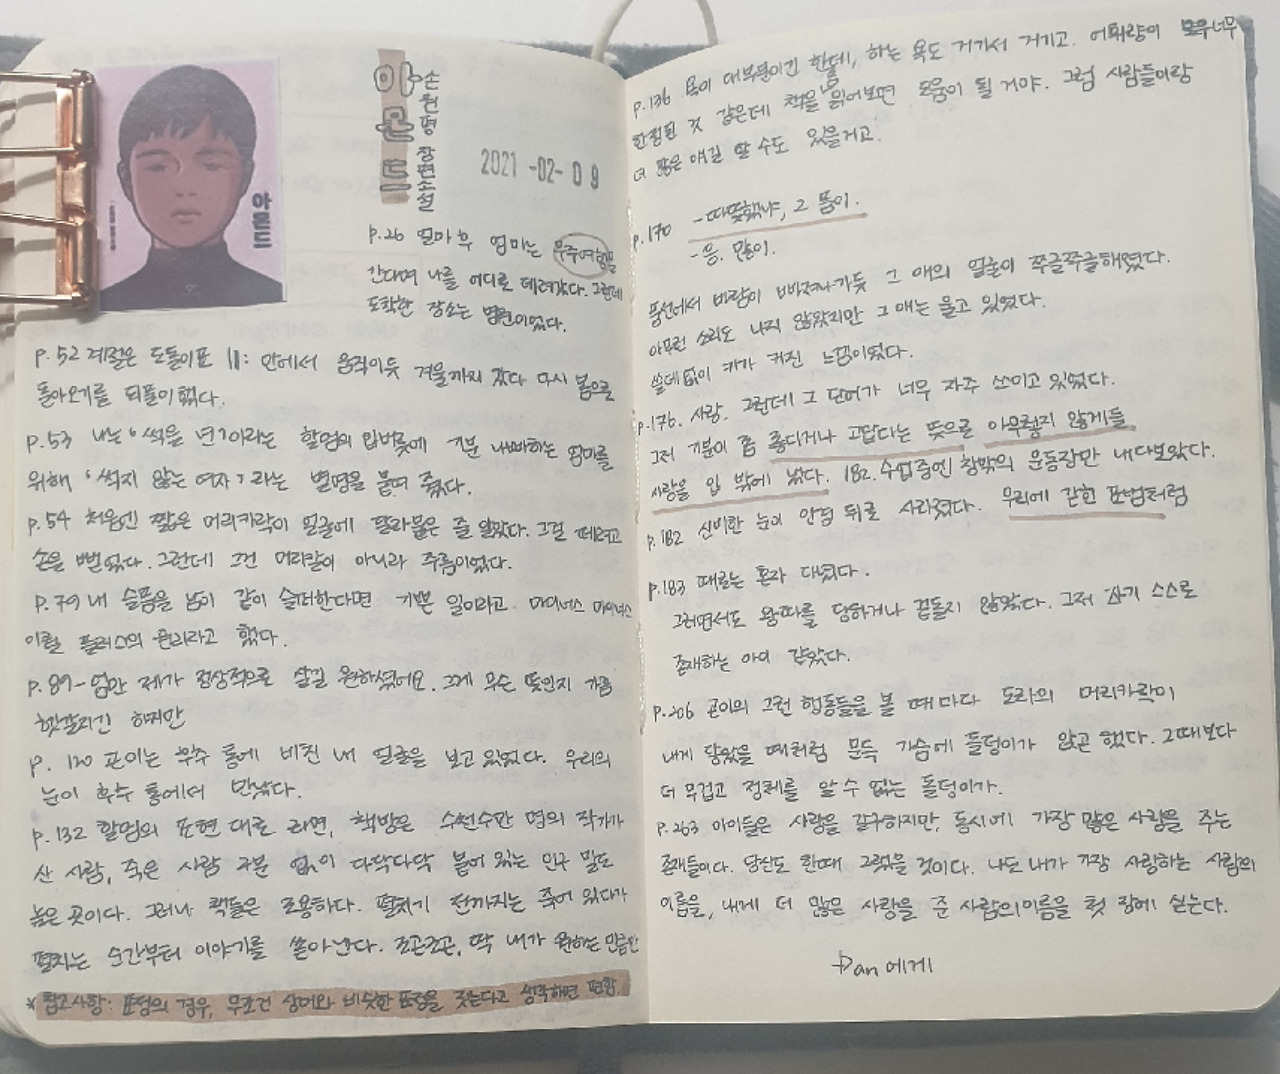 아몬드
손원평 장편소설
아몬드
2021-02-09
p.26 얼마 후 엄마는 우주여행을
간다며 나를 어디로 데려갔다. 그런데
도착한 장소는 병원이었다.
p.52 계절은 도돌이표 ||: 안에서 움직이듯 겨울까지 갔다 다시 봄으로
돌아오기를 되풀이했다.
p.53 나는 '썩을 년'이라는 할멈의 입버릇에 기분 나빠하는 엄마를
위해 '썩지 않는 여자'라는 별명을 붙여 줬다.
p.54 처음엔 짧은 머리카락이 얼굴에 달라붙은 줄 알았다. 그걸 떼려고
손을 뻗었다. 그런데 그건 머리칼이 아니라 주름이었다.
p.79 내 슬픔을 남이 같이 슬퍼한다면 기쁜 일이라고. 마이너스 마이너스
이퀄 플러스의 원리라고 했다.
p.89 - 엄만 제가 정상적으로 살길 원하셨어요. 그게 무슨 뜻인지 가끔
헷갈리긴 하지만
p. 120 곤이는 후추 통에 비친 내 얼굴을 보고 있었다. 우리의
눈이 후추 통에서 만났다.
p.132 할멈의 표현 대로 라면, 책방은 수천수만 명의 작가가
산 사람, 죽은 사람 구분 없이 다닥다닥 붙어 있는 인구 밀도
높은 곳이다. 그러나 책들은 조용하다. 펼치기 전까지는 죽어 있다가
펼치는 순간부터 이야기를 쏟아낸다. 조곤조곤, 딱 내가 원하는 만큼만
* 참고사항: 표정의 경우, 무조건 상대와 비슷한 표정을 짓는다고 생각하면 편함.
p.136 욕이 대부분이긴 한데, 하는 욕도 거기서 거기고. 어휘량이 너무
한정된 것 같은데 책을 읽어보면 도움이 될 거야. 그럼 사람들이랑
더 많은 얘길 할 수도 있을거고.
p.170 - 따뜻했냐, 그 품이.
- 응. 많이.
풍선에서 바람이 빠져나가듯 그 애의 얼굴이 쭈글쭈글해졌다.
아무런 소리도 나지 않았지만 그 애는 울고 있었다.
쓸데없이 키가 커진 느낌이었다.
p.176. 사랑. 그런데 그 단어가 너무 자주 쓰이고 있었다.
그저 기분이 좀 좋다거나 고맙다는 뜻으로 아무렇지 않게들
사랑을 입 밖에 냈다. 182. 수업중엔 창밖의 운동장만 내다보았다.
p.182 신비한 눈이 안경 뒤로 사라졌다. 우리에 갇힌 표범처럼
p.183 때로는 혼자 다녔다.
그러면서도 왕따를 당하거나 겉돌지 않았다. 그저 자기 스스로
존재하는 아이 같았다.
p.206 곤이의 그런 행동들을 볼 때마다 도라의 머리카락이
내게 닿았을 때처럼 문득 가슴에 돌덩이가 앉곤 했다. 그때보다
더 무겁고 정체를 알 수 없는 돌덩이가.
p.263 아이들은 사랑을 갈구하지만, 동시에 가장 많은 사랑을 주는
존재들이다. 당신도 한때 그랬을 것이다. 나도 내가 가장 사랑하는 사람의
이름을, 내게 더 많은 사랑을 준 사람의 이름을 첫 장에 싣는다.
Dan에게